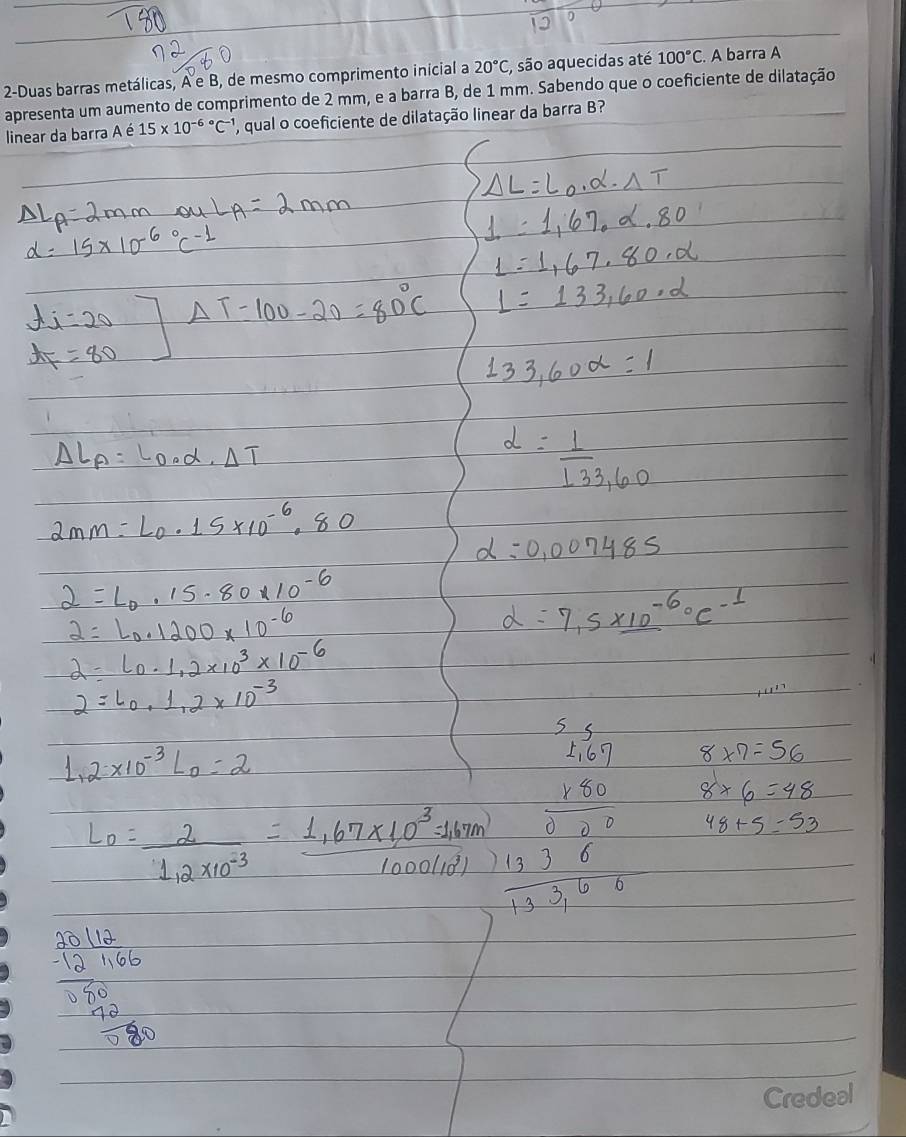 180
72
080
1200
2-Duas barras metálicas, A e B, de mesmo comprimento inicial a 20°C, são aquecidas até 100°C. A barra A
apresenta um aumento de comprimento de 2 mm, e a barra B, de 1 mm. Sabendo que o coeficiente de dilatação
linear da barra A é 15 x 10⁻⁶ °C⁻¹, qual o coeficiente de dilatação linear da barra B?
ΔLA=2mm ou LA=2mm
α=15×10⁻⁶ °C⁻¹
ti=20
tF=80
ΔT=100-20=80°C
ΔLA=L0.α.ΔT
2mm=L0.15×10⁻⁶.80
2=L0.15.80×10⁻⁶
2=L0.1200×10⁻⁶
2=L0.1,2×10³×10⁻⁶
2=L0.1,2×10⁻³
1,2×10⁻³L0=2
L0=2/1,2×10⁻³ = 1,67×10³/1000(10³) =1,67m
20|12
-12 1,66
080
72
080
ΔL=L0.α.ΔT
1=1,67.α.80
1=1,67.80.α
1=133,60.α
133,60α=1
α=1/133,60
α=0,007485
α=7,5×10⁻⁶°C⁻¹
5 5
1,67
×80
000
1336
133,60
8×7=56
8×6=48
48+5=53
Credeal